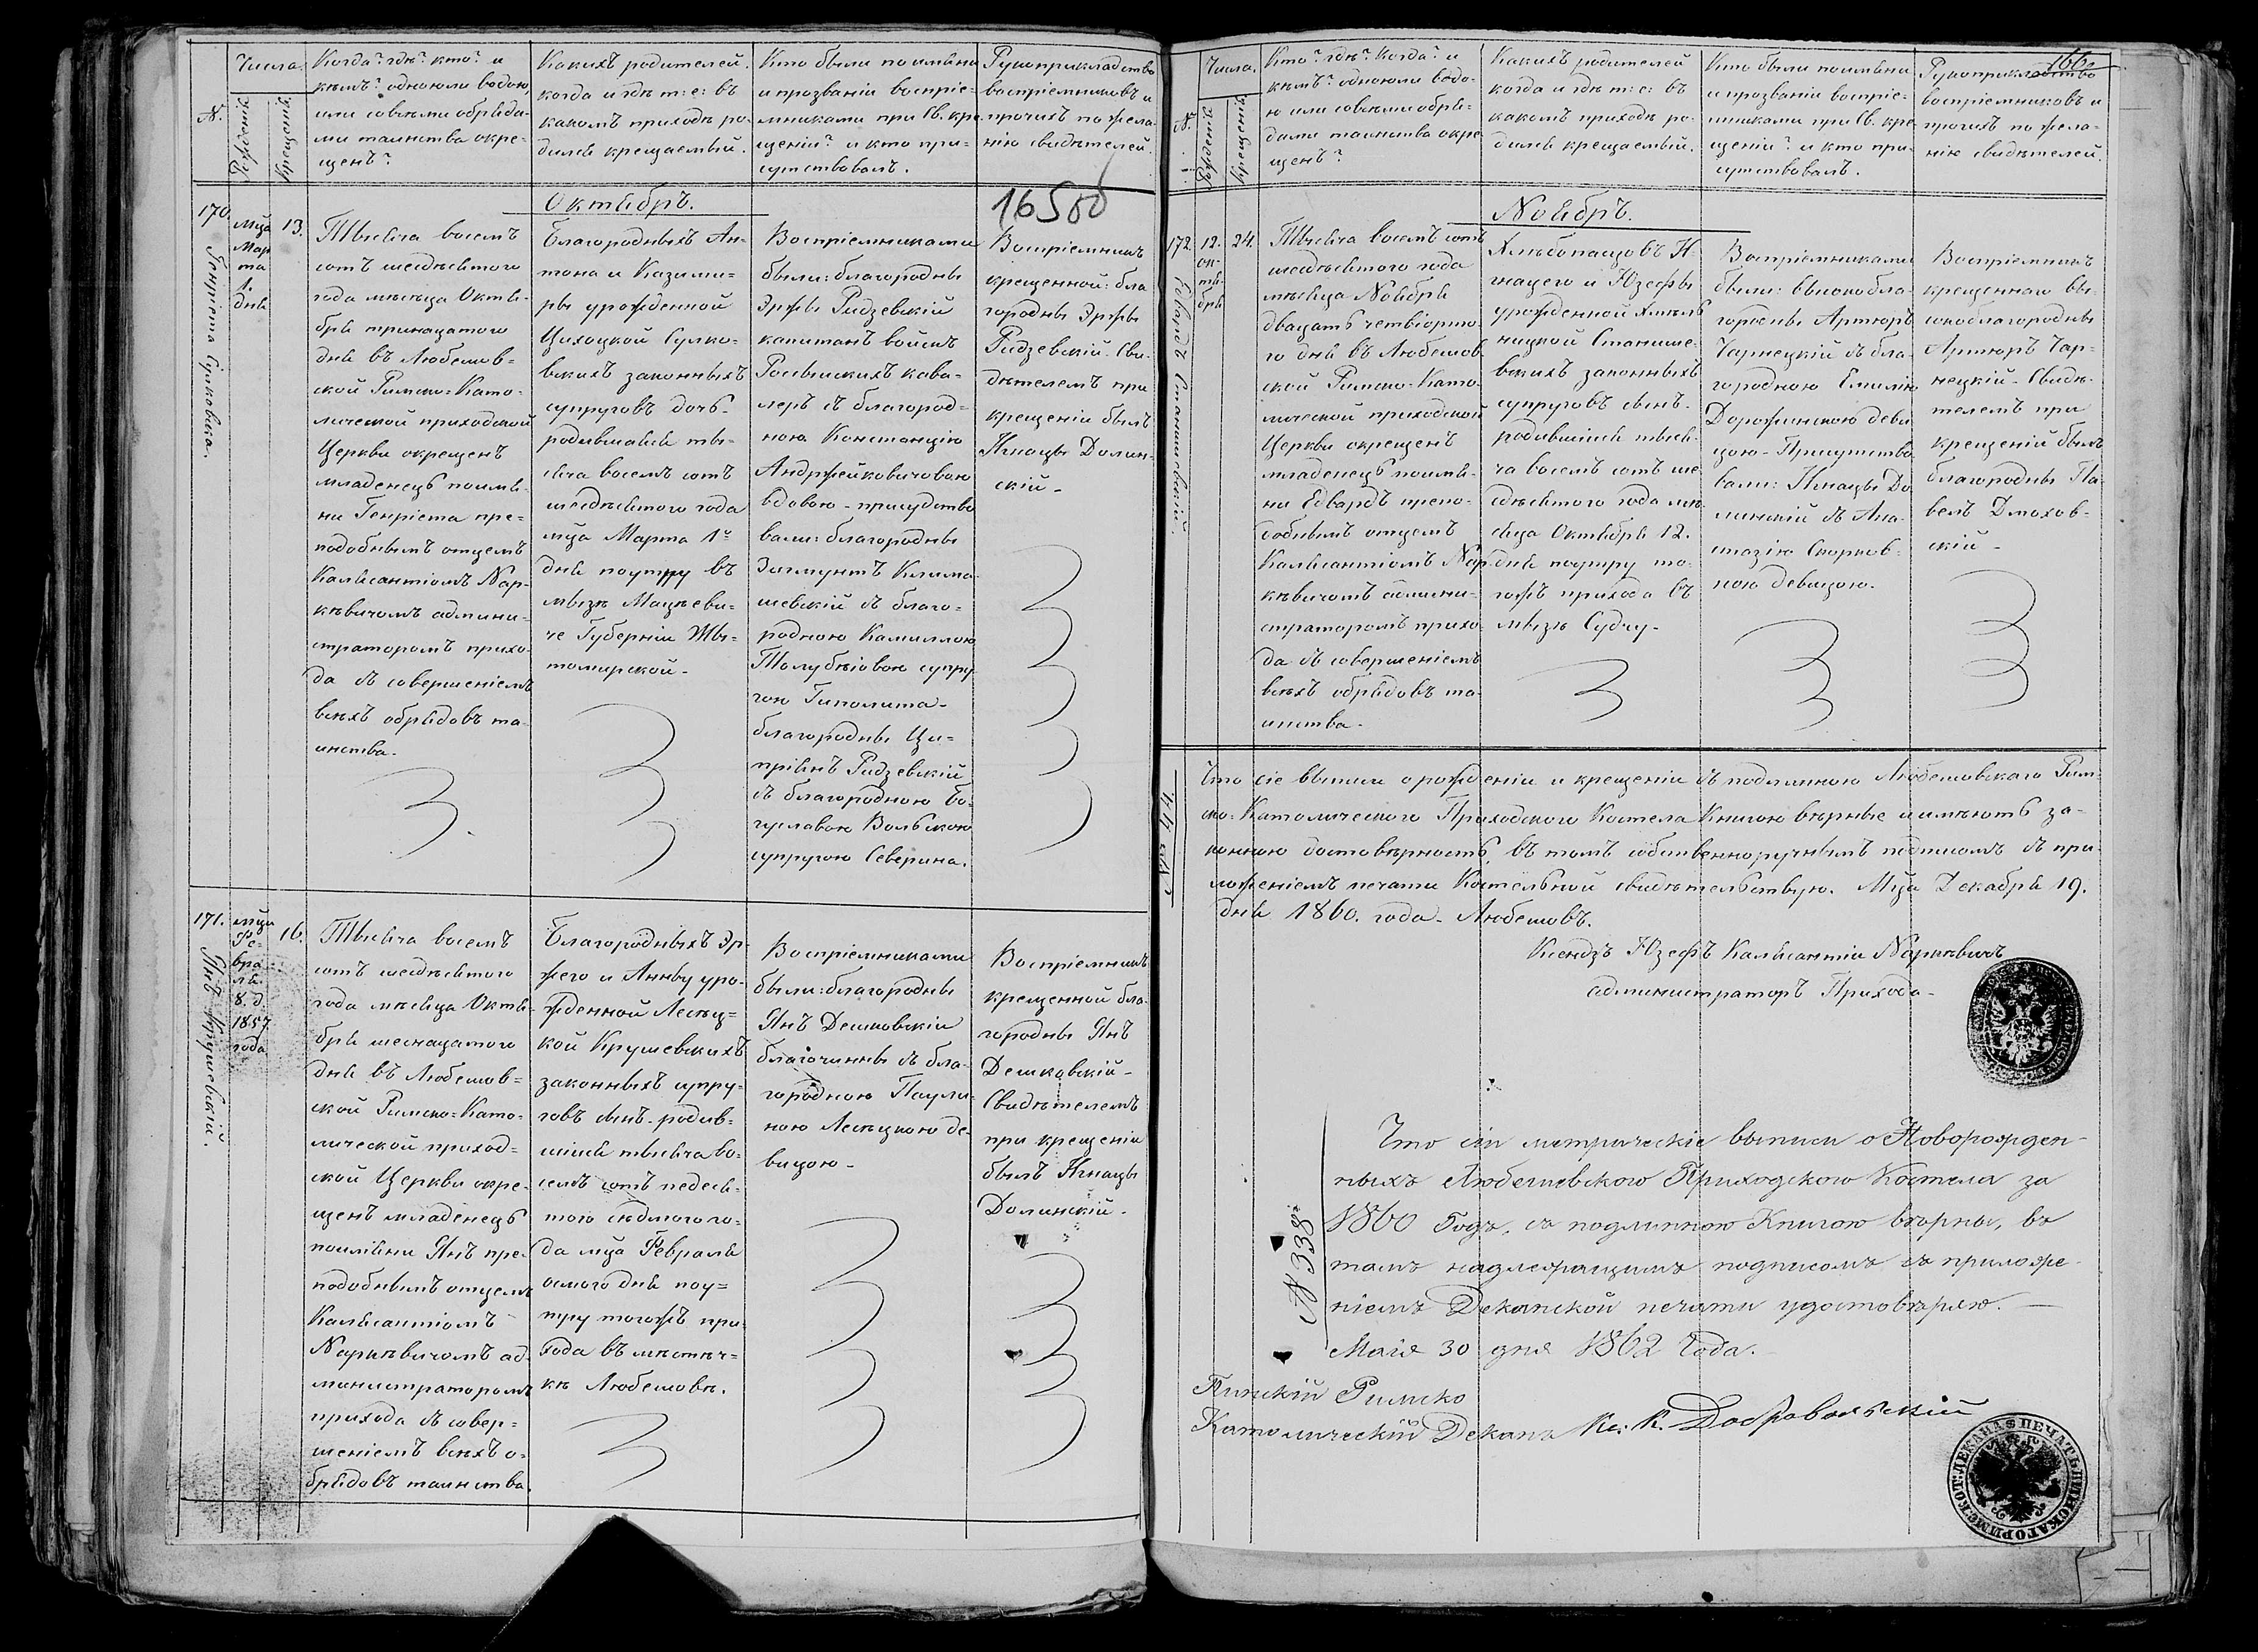 №.
Числа.
Рожденія
Крещенія
Когда? гдѣ? кто? и
кѣмъ? одною ли водою
или со всѣми обряда-
ми таинства окре-
щенъ?
Какихъ родителей.
когда и гдѣ т: е: въ
какомъ приходѣ ро-
дился крещаемый.
Кто были по имени
и прозваніи воспріе-
мниками при Св. кре-
щеніи? и кто при-
сутствовалъ.
Рукоприкладство
воспріемниковъ и
прочихъ по жела-
нію свидѣтелей.
Октябрь.
16500
170.
Генріета Сулковска.
мца
Мар
та
1.
дня
13.
Тысяча восемъ
сотъ шесдѣсятого
года мѣсяца Октя-
бря тринацатого
дня въ Любешов=
ской Римско=Като-
лической приходской
Церкви окрещенъ
младенецъ поимѣ-
ни Генріета пре=
подобнымъ отцемъ
Калясантіомъ Нар-
кѣвичомъ админи-
страторомъ прихо-
да съ совершеніемъ
всѣхъ обрядовъ та-
инства-
Благородныхъ Ан-
тона и Казими=
ры урожденной
Цихоцкой Сулко-
вскихъ законныхъ
супруговъ дочь-
родившаяся ты-
сяча восемъ сотъ
шесдѣсятого года
мца Марта 1го
дня поутру въ
мызѣ Мацѣеви-
че Губерніи Жы-
томирской-
Воспріемниками
были: благородны
Эржы Ридзевскій
капитанъ войскъ
Россыискихъ кава-
леръ съ благород=
ною Констанцію
Андржейковичовою
вдовою - присудство
вали: благородны
Зыгмунтъ Клима-
шевскій съ благо=
родною Камиллою
Толубѣіовою супру
гою Гиполита-
благородны Ци=
пріянъ Ридзевскій
съ благородною Бо-
гуславою Вольскою
супругою Северина.
Воспріемникъ
крещенной: бла
городны Эржы
Ридзевскій. Сви-
дѣтелемъ при
крещеніи былъ
Игнацы Долин-
скій-
171.
Янъ Крушевскій.
мца
Фе-
вра
ля
8. д.
1857
года
16.
Тысяча восемъ
сотъ шесдѣсятого
года мѣсяца Октя-
бря шеснацатого
дня въ Любешов=
ской Римско=Като-
лической приход=
ской Церкви окре-
щенъ младенецъ
поимѣни Янъ пре-
подобнымъ отцемъ
Калясантіомъ
Наркѣвичомъ ад-
министраторомъ
прихода съ совер=
шеніемъ всѣхъ о-
брядовъ таинства.
Благородныхъ Эр-
жего и Анны уро-
жденной Лесѣц=
кой Крушевскихъ
законныхъ супру-
говъ сынъ-родив-
шійся тысяча во-
семъ сотъ педеся-
того сѣдмого го-
да мца Февраля
осмого дня поу=
тру тогожъ при-
хода въ мѣстеч=
кѣ Любешовѣ.
Воспріемниками
были: благородны
Янъ Дешковскій
благочинны съ бла-
городною Паули-
ною Лесѣцкою де-
вицою-
Воспріемникъ
крещенной бла-
городны Янъ
Дешковскій-
Свидѣтелемъ
при крещеніи
былъ Игнацы
Долинскій-
166
№.
Числа.
Рожденія
Крещенія
Кто? гдѣ? Когда? и
кѣмъ? одною ли водо-
ю или совсѣми обря-
дами таинства окре
щенъ?
Какихъ родителей
когда и гдѣ т: е: въ
какомъ приходѣ ро-
дился крещаемый.
Кто были поимѣни
и прозваніи воспріе-
мниками при Св. кре
щеніи? и кто при-
сутствовалъ.
Рукоприкладство
воспріемниковъ и
прочихъ по жела-
нію свидѣтелей.
Ноябрь.
172.
Едвардъ Станишевскій.
12.
ок-
тя-
бря
24.
Тысяча восемъ сотъ
шесдѣсятого года
мѣсяца Ноября
двацать четвіорто-
го дня въ Любешов-
ской Римско-Като-
лической приходской
Церкви окрещенъ
младенецъ поимѣ-
ни Едвардъ препо-
добнымъ отцемъ
Калясантіомъ Нар
кѣвичомъ админи-
страторомъ прихо-
да съ совершеніемъ
всѣхъ обрядовъ та-
инства-
Хлѣбопащовъ И-
гнацего и Юзефы
урожденной Хмѣль
ницкой Станише-
вскихъ законныхъ
супруговъ сынъ-
родившійся тыся-
ча восемъ сотъ ше-
сдѣсятого года мѣ-
сяца Октября 12.
дня поутру то-
гожъ прихода въ
мызѣ Судчу-
Воспріемниками
были: высокобла-
городны Артюръ
Чарнецкій съ бла-
городною Емилію
Дорожинскою деви
цою- Присутство
вали: Игнацы До
линскій съ Ана-
стазію Скорков-
ною девицою.
Воспріемникъ
крещенного вы-
сокоблагородны
Артюръ Чар-
нецкій- Свидѣ-
телемъ при
крещеній былъ
благородны Па-
велъ Дмохов-
скій-
Что сіе выписи о рожденіи и крещеніи съ подлинною Любешовскаго Рим-
ско=Католического Приходского Костела Книгою вѣрные и имѣютъ за-
конною достовѣрность, въ томъ собственноручнымъ подписомъ съ при-
ложеніемъ печати Костельной свидѣтельствую. Мца Декабря 19.
дня 1860. года- Любешовъ.
Ксендзъ Юзефъ Калясантій Наркѣвичъ
администраторъ Прихода-
Что сіи метрическіе выписи о Новорожден-
ныхъ Любешевского Приходского Костела за
1860 Годъ, съ подлинною Книгою вѣрны, въ
томъ надлежащимъ подписомъ съ приложе-
ніемъ Деканской печати удостовѣряю. —
№ 338
Маія 30 дня 1862 Года.
Пинскій Римско
Католическій Деканъ Кс. К. Добровольскій
ПЕЧАТЬ ПИНСКАГО РИМСКО КАТ: ДЕКАНА